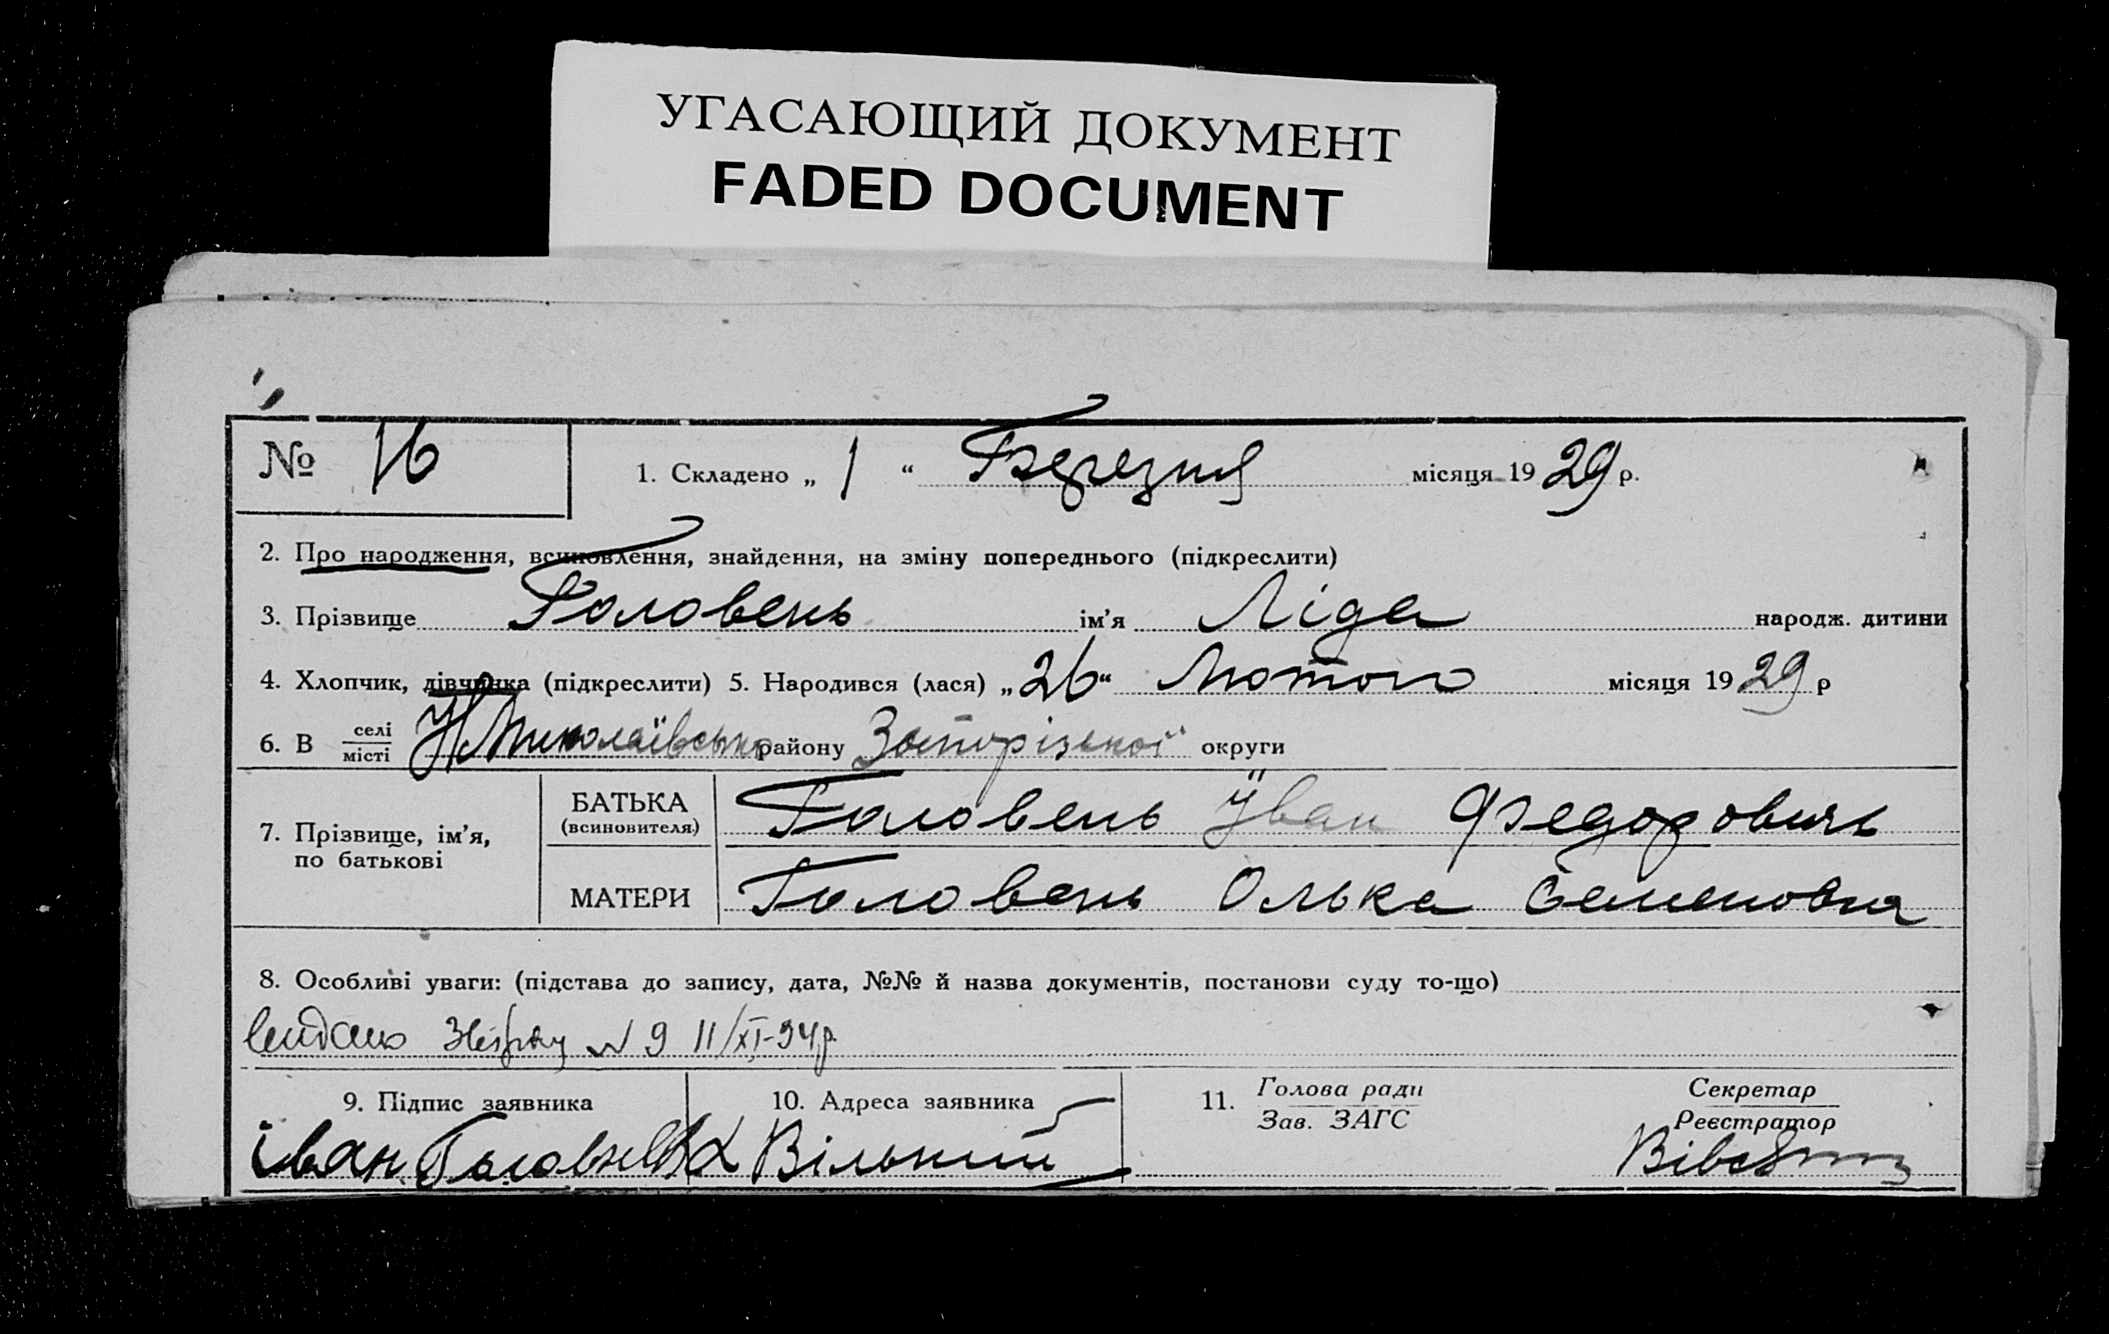 УГАСАЮЩИЙ ДОКУМЕНТ
FADED DOCUMENT
№ 16
1. Складено „ 1 “ Березня місяця 1929 р.
2. Про народження, всиновлення, знайдення, на зміну попереднього (підкреслити)
3. Прізвище Головень ім’я Ліда народж. дитини
4. Хлопчик, дівчинка (підкреслити) 5. Народився (лася) „26“ Лютого місяця 1929 р
6. В селі
місті Миколаївськ району Запорізької округи
7. Прізвище, ім’я,
по батькові
БАТЬКА
(всиновителя)
Головень Іван Федорович
МАТЕРИ Головень Олька Семеновна
8. Особливі уваги: (підстава до запису, дата, №№ й назва документів, постанови суду то-що)
видано N 9 11/XI-34р.
9. Підпис заявника 10. Адреса заявника 11. Голова ради Секретар
Зав. ЗАГС Реєстратор
іван Вільний